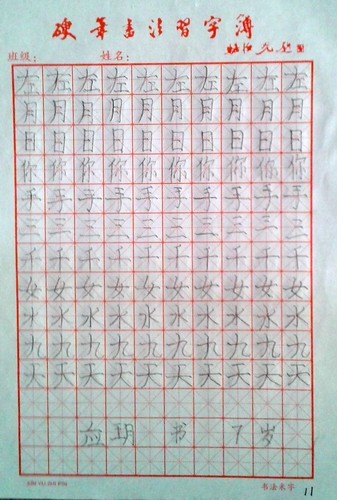 硬筆書法習字簿
班级： 姓名：
左左左左左左左左左左
月月月月月月月月月月
日日日日日日日日日日
你你你你你你你你你你
手手手手手手手手手手
三三三三三三三三三三
千千千千千千千千千千
女女女女女女女女女女
水水水水水水水水水水
九九九九九九九九九九
天天天天天天天天天天
书 7岁
11